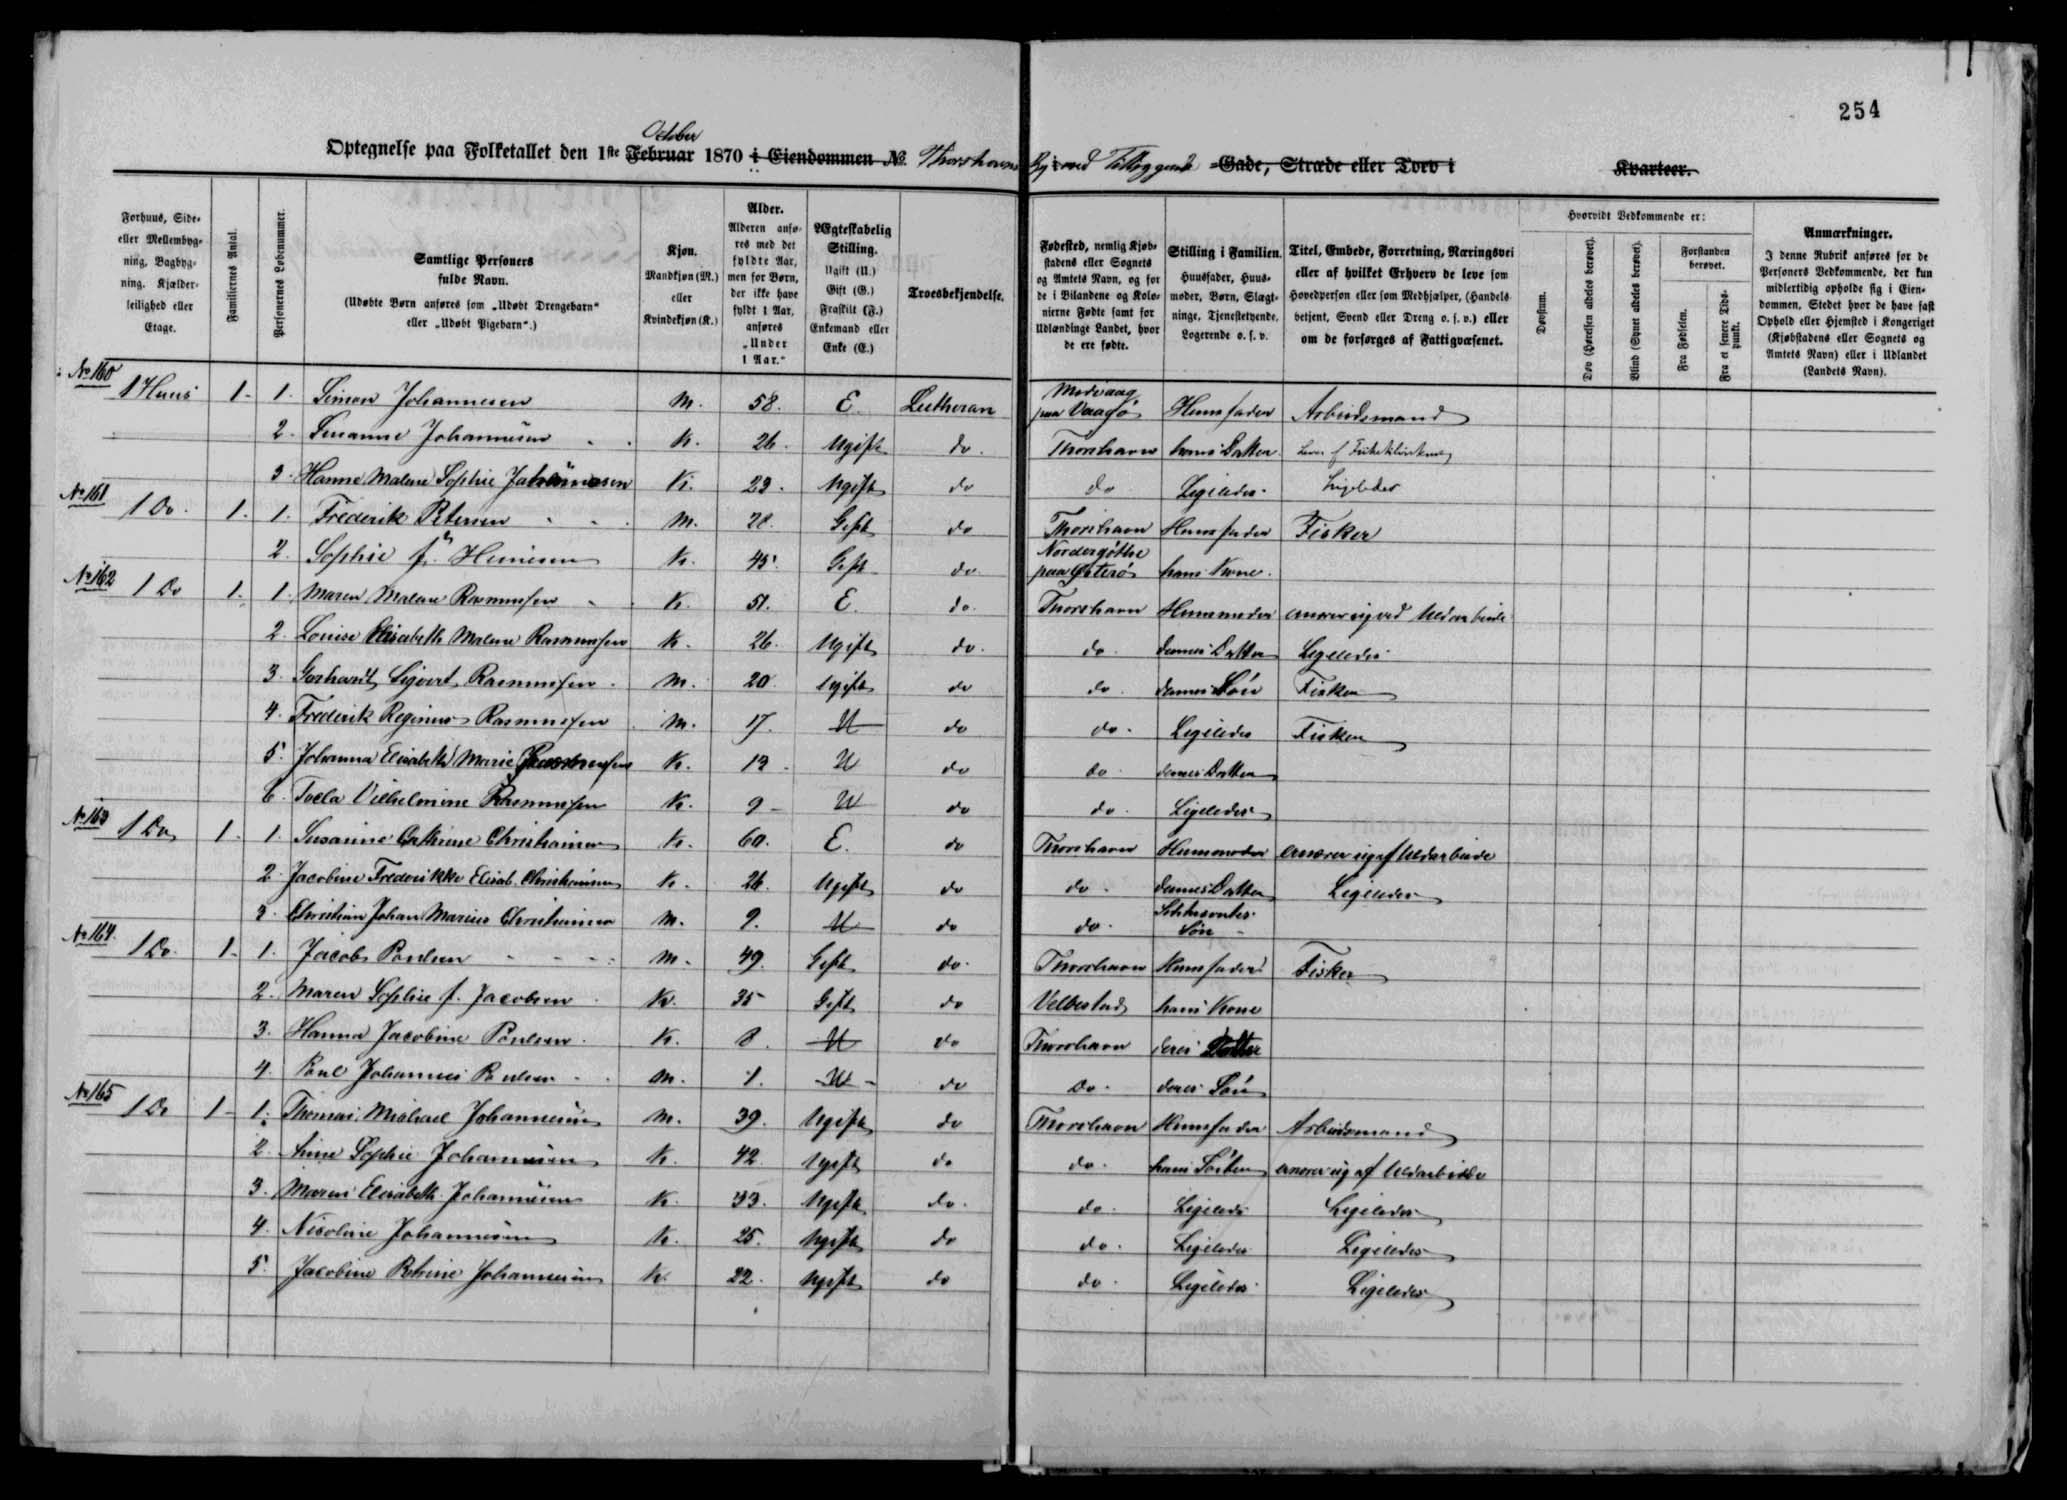 254
October
Optegnelse paa Folketallet den 1ste Februar 1870 i Eiendommen № Thorshavns By med Gade, Stræde eller Torv i Kvarteer.
Forhuus, Side- eller Mellembyg- ning, Bagbyg- ning. Kjælder- leilighed eller Etage.
Familiernes Antal.
Personernes Løbenummer.
Samtlige Personers fulde Navn. (Udøbte Børn anføres som „Udøbt Drengebarn“ eller „Udøbt Pigebarn“.)
Kjøn. Mandkjøn (M.) eller Kvindekjøn (K.)
Alder. Alderen anfø- res med det fyldte Aar, men for Børn, der ikke have fyldt 1 Aar, anføres „Under 1 Aar.“
Ægteskabelig Stilling. Ugift (U.) Gift (G.) Fraskilt (F.) Enkemand eller Enke (E.)
Troesbekjendelse.
Fødested, nemlig Kjøb- stadens eller Sognets og Amtets Navn, og for de i Bilandene og Kolo- nierne Fødte samt for Udlændinge Landet, hvor de ere fødte.
Stilling i Familien. Huusfader, Huus- moder, Børn, Slægt- ninge, Tjenestetyende, Logerende o. s. v.
Titel, Embede, Forretning, Næringsvei eller af hvilket Erhverv de leve som Hovedperson eller som Medhjælper, (Handels- betjent, Svend eller Dreng o. s. v.) eller om de forsørges af Fattigvæsenet.
Hvorvidt Vedkommende er:
Døvstum.
Døv (Hørelsen aldeles berøvet).
Blind (Synet aldeles berøvet).
Forstanden berøvet.
Fra Fødselen.
Fra et senere Tids- punkt.
Anmærkninger. I denne Rubrik anføres for de Personers Vedkommende, der kun midlertidig opholde sig i Eien- dommen, Stedet hvor de have fast Ophold eller Hjemsted i Kongeriget (Kjøbstadens eller Sognets og Amtets Navn) eller i Udlandet (Landets Navn).
№ 160
1 Huus 1. 1. Simon Johannesen M. 58. E. Lutheran Midvaag paa Vaagø Huusfader Arbeidsmand
2. Susanne Johannesen K. 26. Ugift do. Thorshavn hans Datter
3. Hanne Malene Sophie Johannesen K. 23. Ugift do do Ligeledes Ligeledes
№ 161
1 Do. 1. 1. Frederik Petersen M. 28. Gift do Thorshavn Huusfader Fisker
2. Sophie f. Heinesen K. 45. Gift do. Nordregøthe paa Østerø hans Kone.
№ 162
1 Do 1. 1. Maren Malene Rasmussen K. 51. E. do. Thorshavn Huusmoder ernærer sig ved Uldarbeide
2. Louise Elisabeth Malene Rasmussen K. 26. Ugift do. do. dennes Datter Ligeledes
3. Gerhardt Sigvert Rasmussen M. 20. Ugift do do. dennes Søn Fisker
4. Frederik Reginus Rasmussen M. 17. U do do. Ligeledes Fisker
5. Johanna Elisabeth Marie Rasmussen K. 13. U do do. dennes Datter
6. Vilhelmine Rasmussen K. 9 U do do. Ligeledes
№ 163
1 Do 1. 1. Susanne Cathrine Christiansen K. 60. E. do Thorshavn Huusmoder ernærer sig af Uldarbeide
2. Jacobine Frederikke Elisab. Christiansen K. 26. Ugift do do. dennes Datter Ligeledes
3. Christian Johan Marius Christiansen M. 9. U do do. Søn
№ 164.
1 Do. 1. 1. Jacob Poulsen M. 49. Gift do. Thorshavn Huusfader Fisker
2. Maren Sophie f. Jacobsen K. 35 Gift do Velbestad hans Kone
3. Hanna Jacobine Poulsen K. 8. U do Thorshavn deres Datter
4. Poul Johannes Poulsen M. 1. U do Do. deres Søn
№ 165
1 Do 1 1. Thomas Michael Johannesen M. 39. Ugift do Thorshavn Huusfader Arbeidsmand
2. Anne Sophie Johannesen K. 42. Ugift do do. hans Søster ernærer sig af Uldarbeide
3. Maren Elisabeth Johannesen K. 33. Ugift do. do. Ligeledes Ligeledes
4. Nicoline Johannesen K. 25. Ugift do do. Ligeledes Ligeledes
5. Jacobine Petrine Johannesen K. 22. Ugift do do. Ligeledes Ligeledes